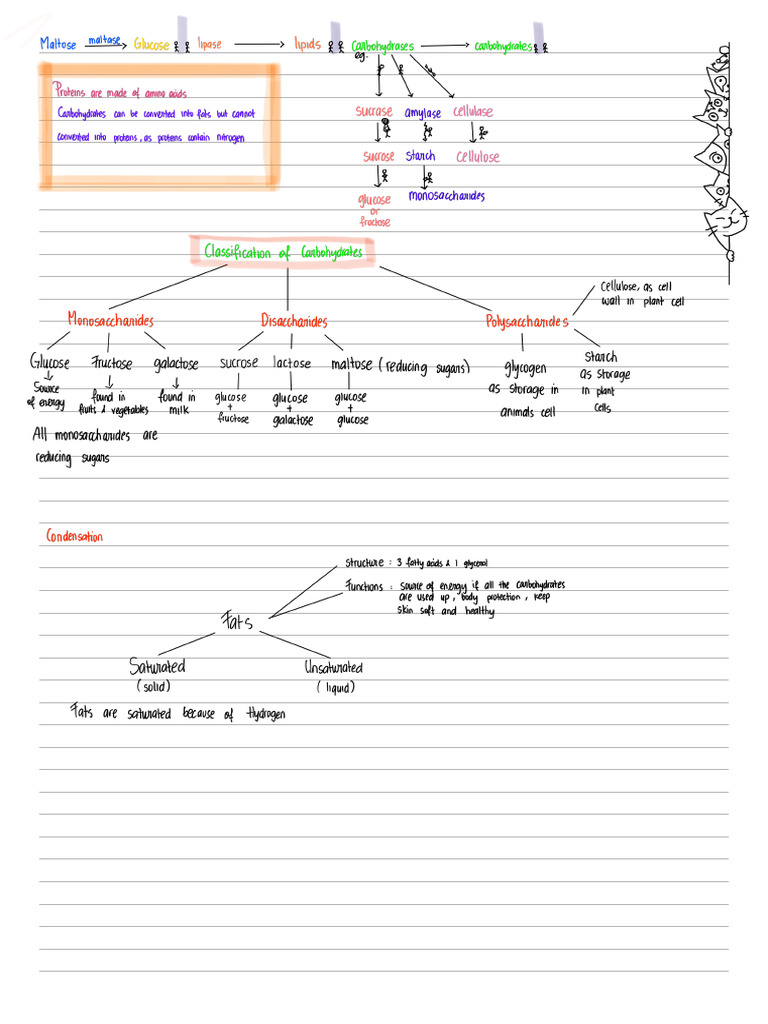 Maltose maltase Glucose lipase lipids Carbohydrases carbohydrates
eg.
Proteins are made of amino acids
Carbohydrates can be converted into fats but cannot
converted into proteins, as proteins contain nitrogen
sucrase amylase cellulase
sucrose starch cellulose
glucose
or
fructose
monosaccharides
Classification of Carbohydrates
Monosaccharides Disaccharides Polysaccharides
Cellulose, as cell
wall in plant cell
Glucose Fructose galactose sucrose lactose maltose (reducing sugars) glycogen
as storage in
animals cell
Starch
as storage
in plant
cells
Source
of energy
found in
fruits & vegetables
found in
milk
glucose
+
fructose
glucose
+
galactose
glucose
+
glucose
All monosaccharides are
reducing sugars
Condensation
Structure : 3 fatty acids & 1 glycerol
Functions : source of energy if all the carbohydrates
are used up, body protection, keep
skin soft and healthy
Fats
Saturated Unsaturated
(solid) (liquid)
Fats are saturated because of Hydrogen